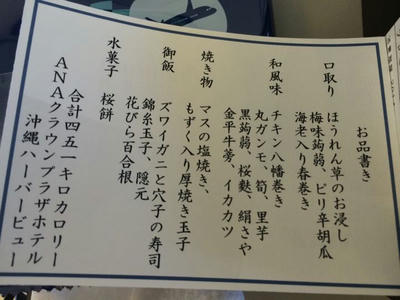 お品書き
口取り
ほうれん草のお浸し
梅味蒟蒻、ピリ辛胡瓜
海老入り春巻き
和風味
チキン八幡巻き
丸ガンモ、筍、里芋
黒蒟蒻、桜麩、絹さや
金平牛蒡、イカカツ
焼き物
マスの塩焼き、
もずく入り厚焼き玉子
御飯
ズワイガニと穴子の寿司
錦糸玉子、隠元
花びら百合根
水菓子 桜餅
合計四五一キロカロリー
ANAクラウンプラザホテル
沖縄ハーバービュー